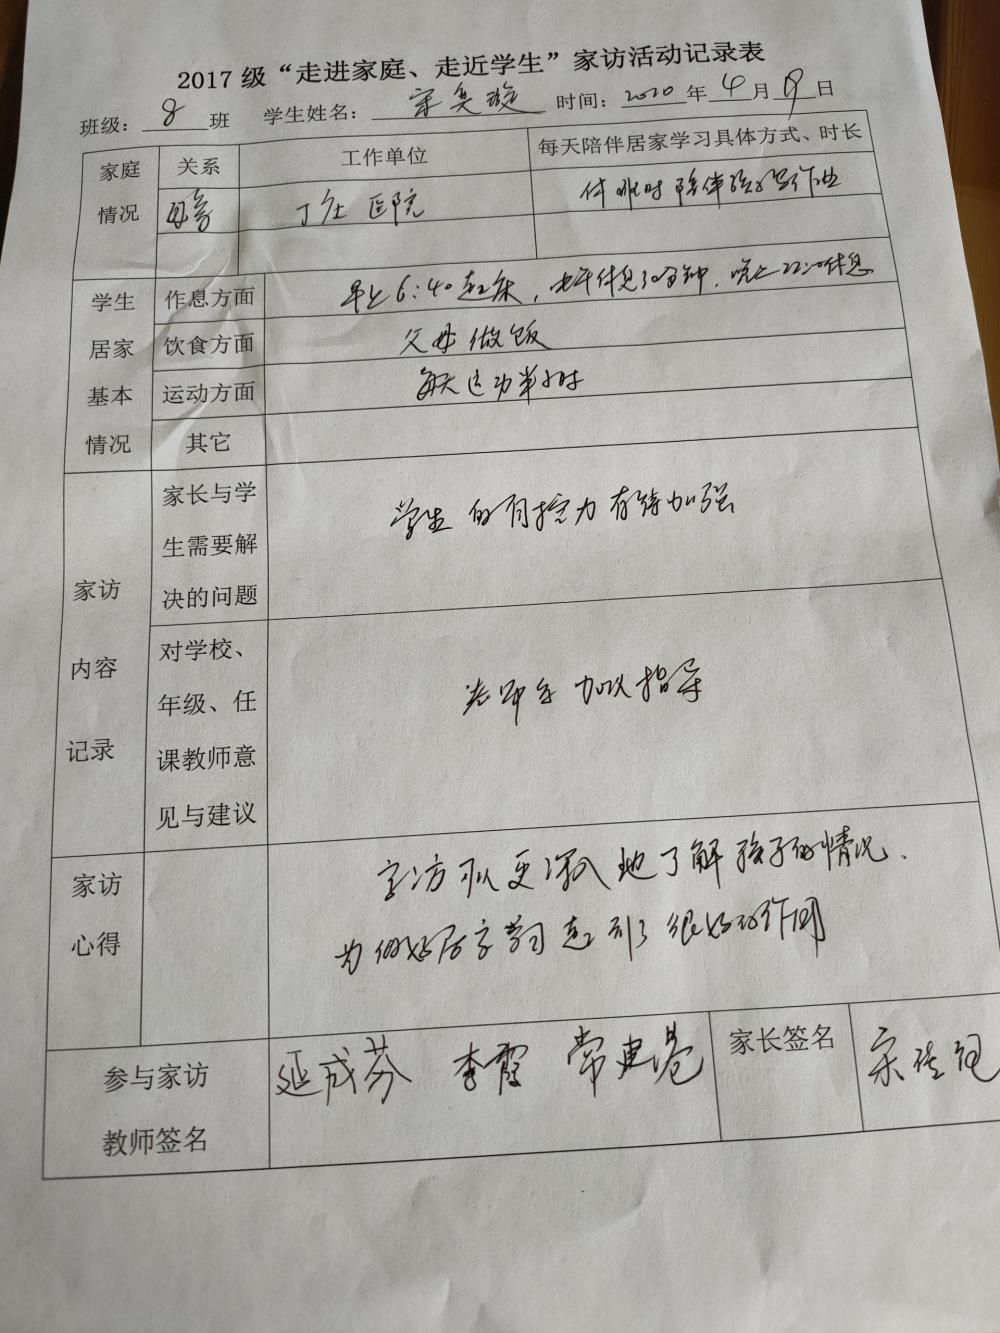 2017级“走进家庭、走近学生”家访活动记录表
班级：8班 学生姓名：宋奕璇 时间：2020年4月 日
家庭情况 关系 工作单位 每天陪伴居家学习具体方式、时长
医院 休息时陪伴孩子写作业
学生居家基本情况
作息方面 早上6:40起床，中午休息30分钟，晚上22:00休息
饮食方面 父母做饭
运动方面 每天运动半小时
其它
家访内容记录
家长与学生需要解决的问题 学生的自控力有待加强
对学校、年级、任课教师意见与建议 老师多加以指导
家访心得 家访可以更深入地了解孩子的情况.
为做好居家学习起到了很好的作用
参与家访教师签名 延成芬 李霞 常建港 家长签名 宋